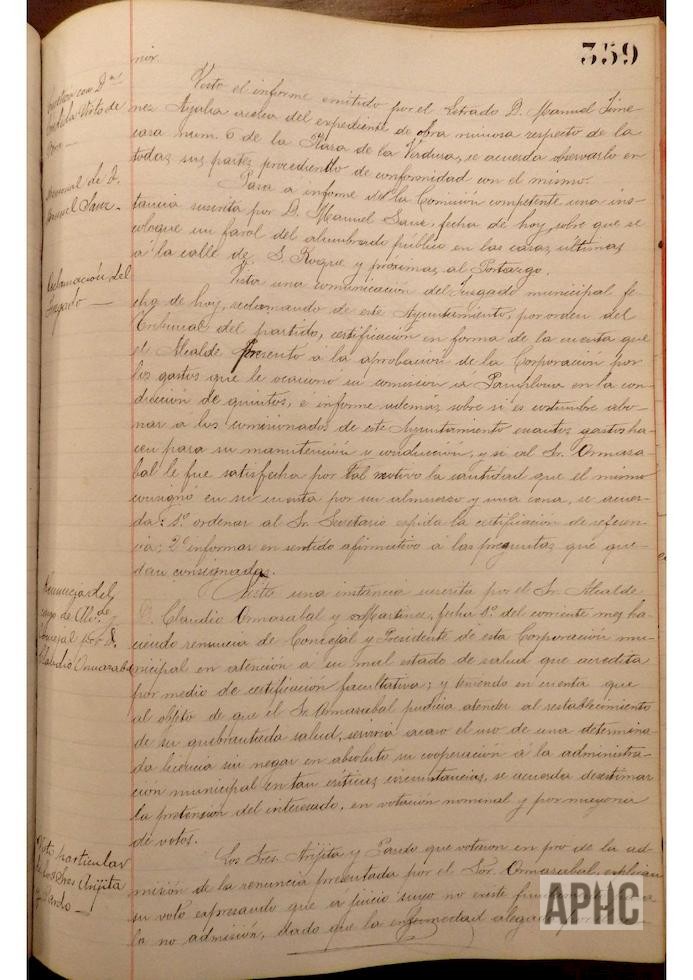 359
nir.
Visto el informe emitido por el Letrado D. Manuel Jime
nez Ayala acerca del expediente de obra ruinosa respecto de la
casa num. 6 de la Plaza de la Verdura, se acuerda observarlo en
todas sus partes procediendo de conformidad con el mismo.
Memorial de D.
Manuel Sanz.
Pasa a informe de la Comisión competente una ins-
tancia suscrita por D. Manuel Sanz, fecha de hoy, sobre que se
coloque un farol del alumbrado público en las casas ultimas
a la calle de S. Roque y próximas al Portazgo.
Reclamación del
Juzgado
Vista una comunicación del Juzgado municipal fe-
cha de hoy, reclamando de este Ayuntamiento, por orden del
Tribunal del partido, certificación en forma de la cuenta que
el Alcalde presentó á la aprobación de la Corporación por
los gastos que le ocasionó su comision á Pamplona en la con-
ducción de quintos, é informe además sobre si es costumbre abo-
nar a los comisionados de este Ayuntamiento cuantos gastos ha-
cen para su manutención y conducción, y se al Sr. Ormaza-
bal le fue satisfecha por tal motivo la cantidad que el mismo
consignó en su cuenta por un almuerzo y una cena, se acuer-
da: 1º ordenar al Sr. Secretario expida la certificación de referen-
cia; 2º informar en sentido afirmativo á las preguntas que que-
dan consignadas.
Renuncia del
cargo de
Claudio Ormazabal
Vista una instancia suscrita por el Sr. Alcalde
D. Claudio Ormazabal y Martinez, fecha 1º. del corriente mes ha-
ciendo renuncia de Concejal y Presidente de esta Corporación mu-
nicipal en atención á su mal estado de salud que acredita
por medio de certificación facultativa; y teniendo en cuenta que
al objeto de que el Sr. Ormazabal pudiera atender al restablecimiento
de su quebrantada salud, serviria acaso el uso de una determina-
da licencia sin negar en absoluto su cooperación á la administra-
ción municipal en tan criticas circunstancias, se acuerda desestimar
la pretensión del interesado, en votación nominal y por mayoria
de votos.
Voto particular
de los Sres Arijita
y Pardo
Los Sres. Arijita y Pardo que votaron en pro de la ad-
misión de la renuncia presentada por el Sor. Ormazabal, explican
su voto expresando que a juicio suyo no existe
la no admisión, dado que la enfermedad alegada por
APHC